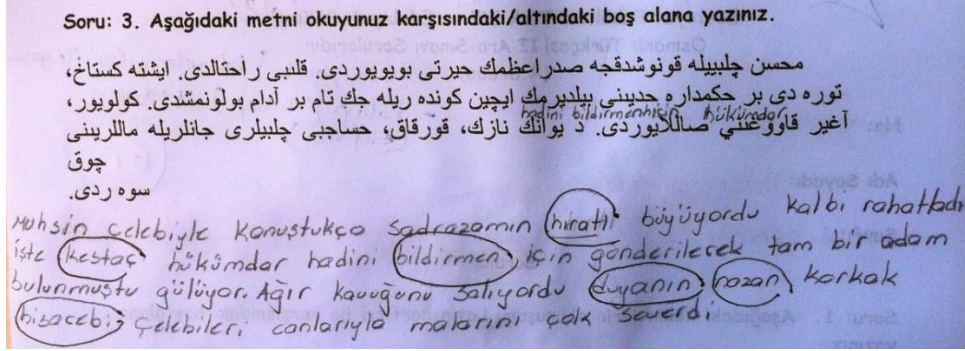 Soru: 3. Aşağıdaki metni okuyunuz karşısındaki/altındaki boş alana yazınız.
محسن چلبيله قونوشدقجه صدراعظمك حيرتى بويويوردى. قلبى راحتالدى. ايشته كستاخ،
توره دى بر حكمداره حدينى بيلديرمك ايچين كونده ريله جك تام بر آدام بولونمشدى. كولويور،
hadini bildirmenhiçin hükümdar
آغير قاووغنى صاللايوردى. ديوانك نازك، قورقاق، حساجبى چلبيلرى جانلريله ماللرينى
چوق
سوه ردى.
Muhsin çelebiyle konuştukça Sadrazamın hiratı büyüyordu kalbi rahatladı
işte kestaç hükümdar hadini bildirmen için gönderilecek tam bir adam
bulunmuştu gülüyor. Ağır kavuğunu salıyordu duyanın nozan korkak
hisacebi çelebileri canlarıyla malarını çok severdi